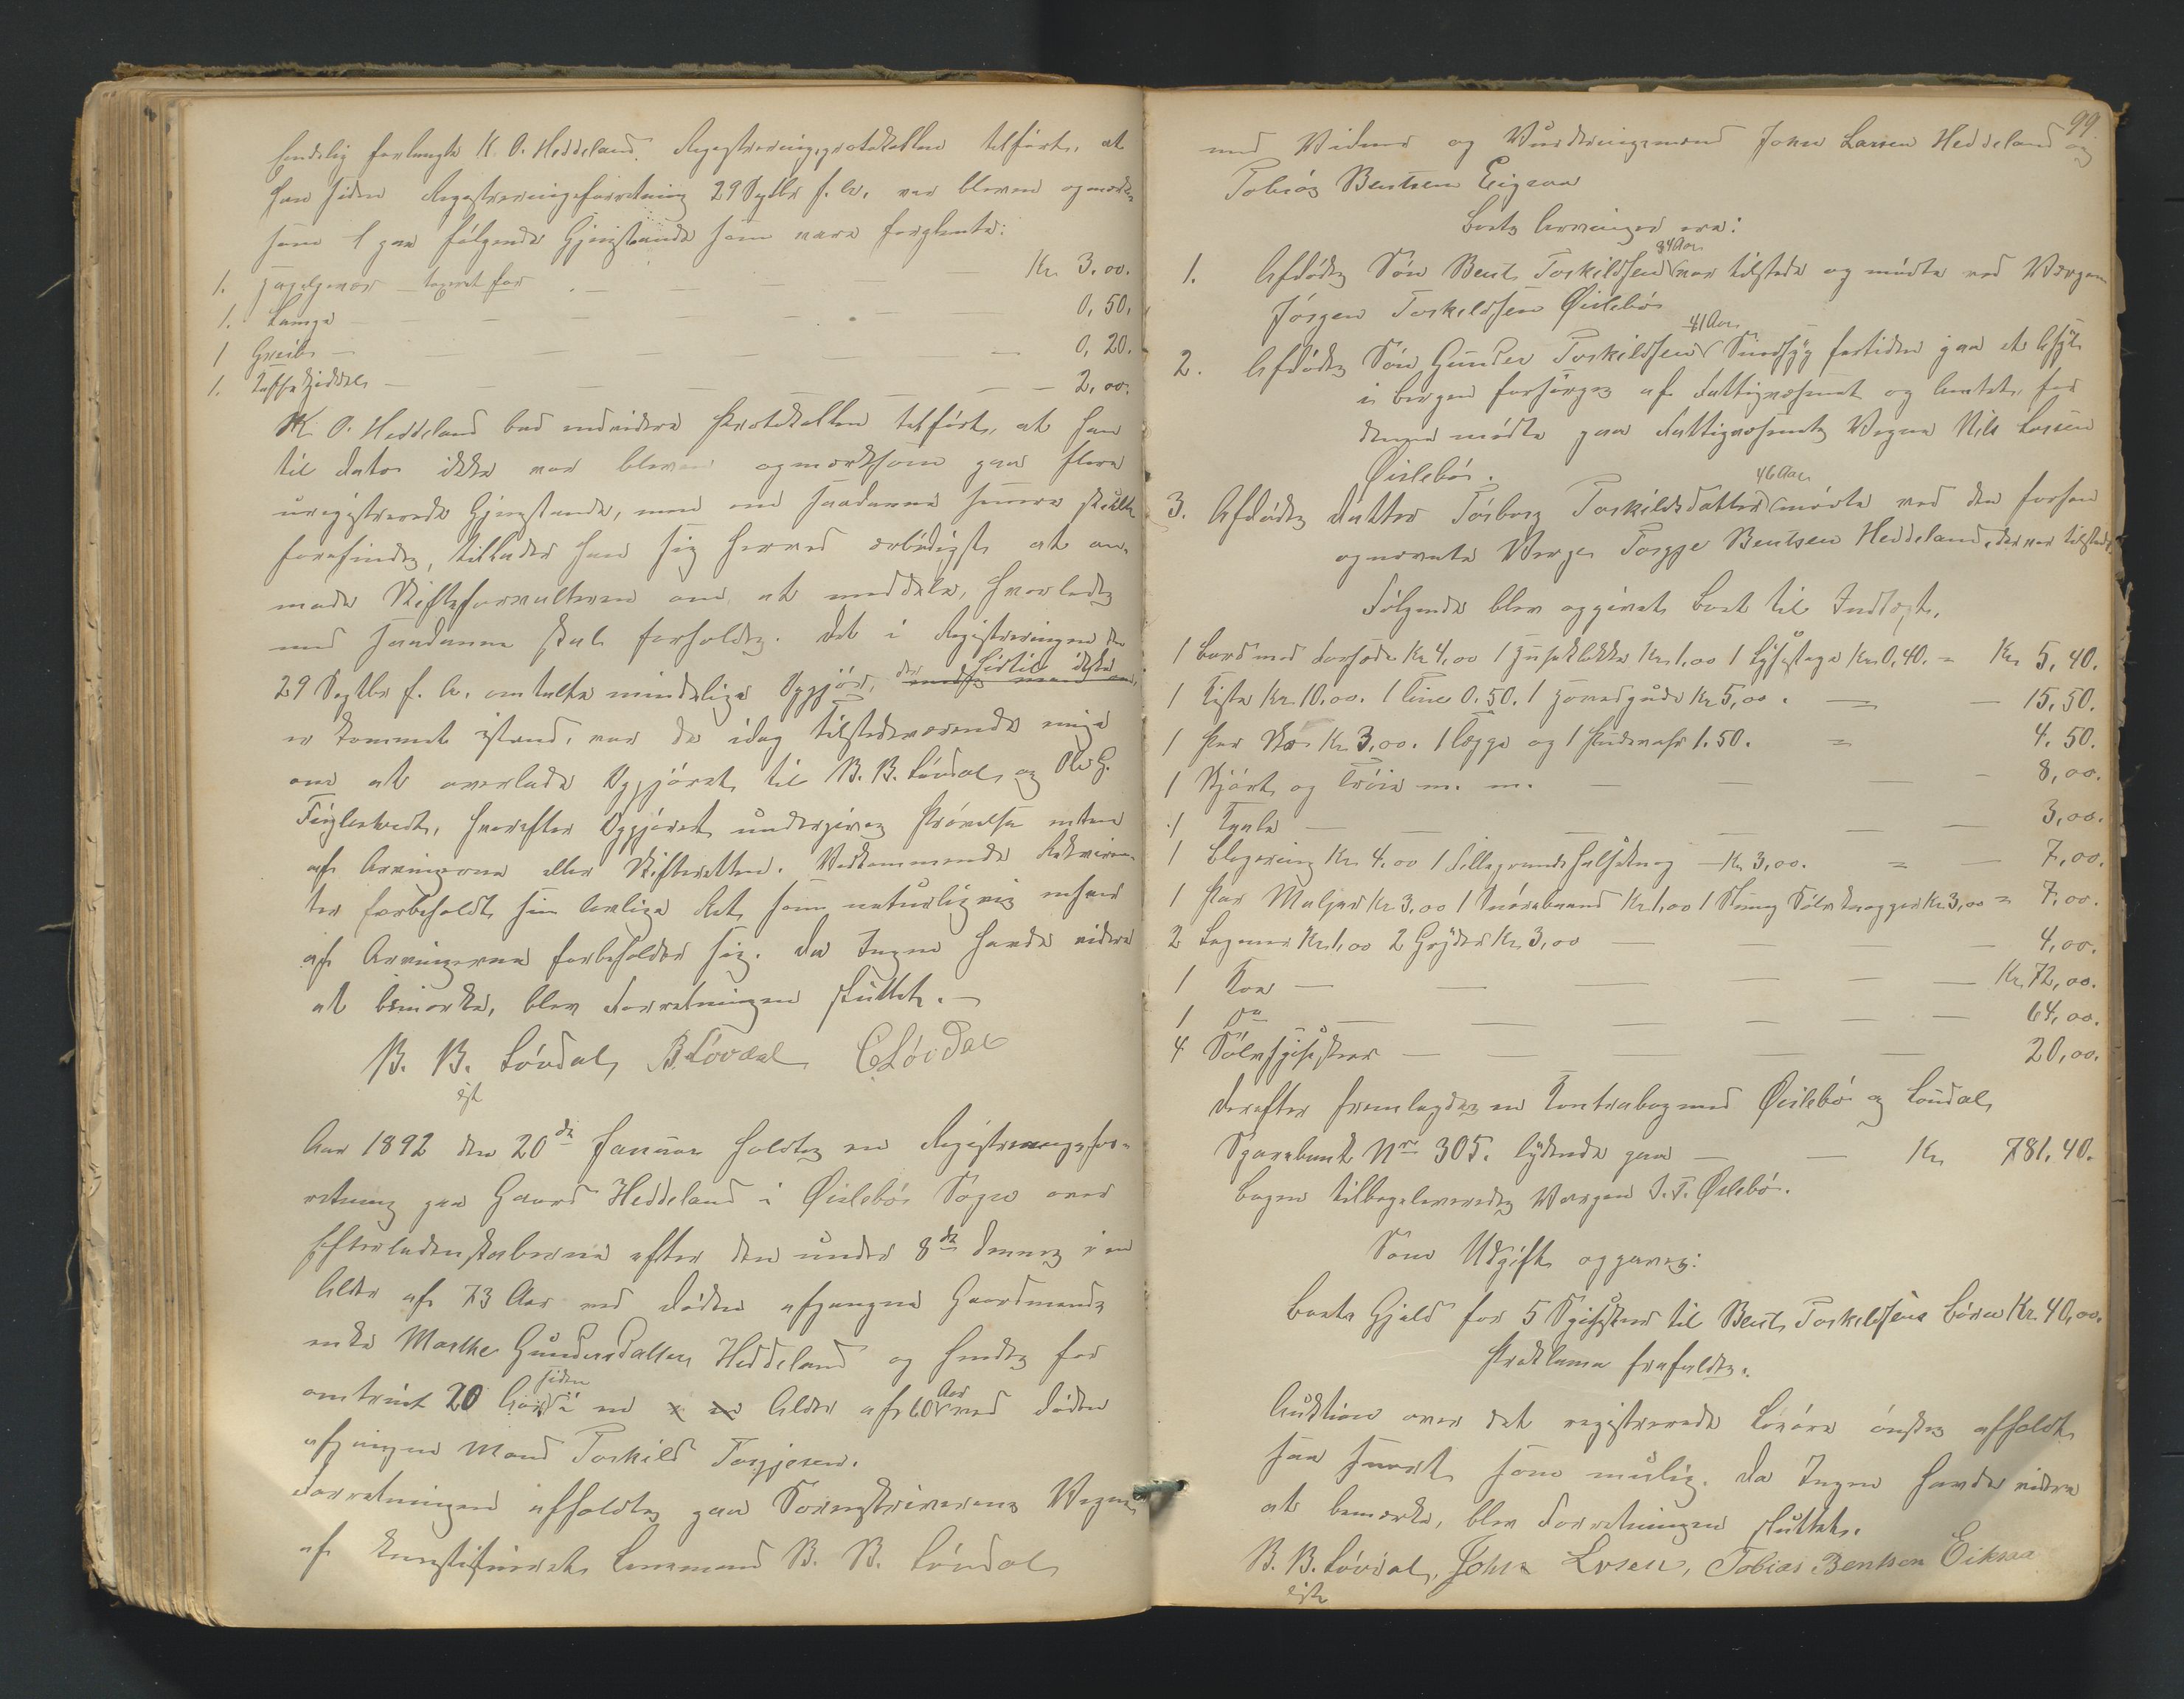 Endelig forlangte K. O. Heddeland Registreringsprotokollen tilført, at
han siden Registreringsforretning 29 Septbr f. A. var bleven opmærk-
som på følgende Gjenstande som vare forglemte:
1. Jagtgevær – taxeret for — — — Kr. 3,00.
1. Lampe — — — 0,50.
1 Greib — — — 0,20.
1. Kaffekjedel — — — 2,00.
K. O. Heddeland bad endvidere Protokollen tilført, at han
til Dato ikke var bleven opmærksom paa flere
uregistrerede Gjenstande, men om saadanne senere skulle
forefindes, tillader han sig herved ærbødigst at an-
mode Skifteforvalteren om at meddele, hvorledes
med saadanne skal forholdes. Det i Registreringen den
29 Septbr f. A. omtalte mindelige Opgjør, der hidtil ikke
er kommet istand, var de idag tilstedeværende enige
om at overlade Opgjøret til B. B. Løvdal og Ole G.
Fuglestvedt, hvorefter Opgjøret undergives Prøvelse enten
af Arvingerne eller Skifteretten. Vedkommende Rekviren-
ter forbeholdt sin lovlige Ret, som naturligvis enhver
af Arvingerne forbeholder sig. Da Ingen havde videre
at bemærke, blev Forretningen sluttet. –
B. B. Løvdal, B Løvdal C Løvdal
cst
Aar 1892 den 20de Januar holdtes en Registreringsfor-
retning paa Gaard Heddeland i Øislebø Sogn over
Efterladenskaberne efter den under 8de dennes i en
Alder af 73 Aar ved Døden afgangne Gaardmands
enke Marthe Gundersdatter Heddeland og hendes for
omtrent 20 Aar siden i en Alder af 60 Aar ved Døden
afgangne Mand Torkild Torgjesen.
Forretningen afholdtes paa Sorenskriverens Vegne
af konstitueret Lensmand B. B. Løvdal
99.
med Vidner og Vurderingsmænd John Larsen Heddeland og
Tobias Bentsen Eigeaa
Boets Arvinger ere:
1. Afdødes Søn Bent Torkildsen 34 Aar var tilstede og mødte ved Værgen
Jørgen Torkildsen Øislebø
2. Afdødes Søn Gunder Torkildsen 41 Aar Sindssyg fortiden paa et Asyl
i Bergen forsørges af Fattigvæsenet og Amtet, for
denne mødte paa Fattigvæsenets Vegne Nils Larsen
Øislebø.
3. Afdødes Datter Tørborg Torkildsdatter 46 Aar mødte ved den forhen
opnævnte Værge Torgje Bentsen Heddeland, der var tilstede.
Følgende blev opgivet Boet til Indtægt.
1 Bord med Forhøde Kr 4,00 1 Husklokke Kr. 1,00 1 Lysestage Kr. 0,40. = Kr 5,40.
1 Kiste Kr. 10,00. 1 Tine 0.50. 1 Hovedpude Kr 5,00. — — 15,50.
1 Par Sko Kr. 3,00. 1 Lægge og 1 Pudevahr 1.50. = 4.50.
1 Skjørt og Trøie m. m. — — — 8,00.
1 Kaabe — — — 3,00.
1 Klæpering Kr. 4.00 1 Sillegrands Halsknap – Kr 3,00. = — 7,00.
1 Par Maljer Kr. 3,00 1 Snørebaand Kr. 1,00 1 Streng Sølvknapper Kr. 3,00 = 7,00.
2 Lagener Kr. 1,00 2 Gryder Kr. 3,00 — — 4,00.
1 Koe — — — Kr. 72,00.
1 Do — — — 64,00.
4 Sølvspiseskeer — — — 20,00.
Derefter fremlagdes en Kontrabog med Øislebø og Laudal
Sparebank Nro 305. lydende paa — — Kr 781,40.
Bogen tilbageleveredes Værgen J. T. Øislebø.
Som Udgift opgaves:
Boets Gjæld for 5 Spiseskeer til Bent Torkildsens Børn Kr. 40,00.
Proklama frafaldes.
Auktion over det registrerede Løsøre ønskes afholdt
saa snart som mulig. Da Ingen havde videre
at bemærke, blev Forretningen sluttet.
B. B. Løvdal, John Lrsen, Tobias Bentsen Eikeaa
cst